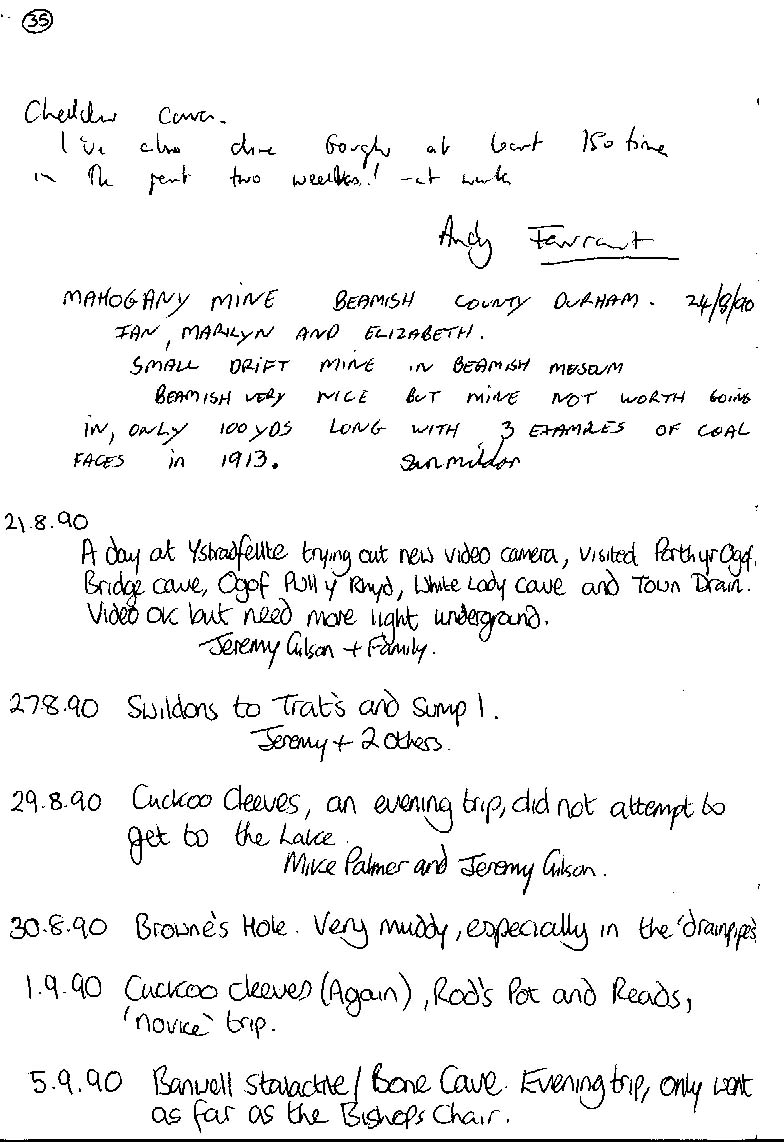 35
Cheddar Caves.
I've also done Goughs at least 150 times
in the past two weeks! - at work
Andy Farrant
MAHOGANY MINE BEAMISH COUNTY DURHAM. 24/8/90
IAN, MARILYN AND ELIZABETH.
SMALL DRIFT MINE IN BEAMISH MUSEUM
BEAMISH VERY NICE BUT MINE NOT WORTH GOING
IN, ONLY 100 YDS LONG WITH 3 EXAMPLES OF COAL
FACES in 1913.
21.8.90
A day at Ystradfellte trying out new video camera, visited Porth yr Ogof,
Bridge cave, Ogof Pwll y Rhyd, White Lady cave and Town Drain.
Video OK but need more light underground.
Jeremy Gilson + Family.
27.8.90 Swildons to Trat's and Sump 1.
Jeremy + 2 others.
29.8.90 Cuckoo Cleeves, an evening trip, did not attempt to
get to the Lake.
Mike Palmer and Jeremy Gilson.
30.8.90 Browne's Hole. Very muddy, especially in the 'drainpipes'
1.9.90 Cuckoo cleeves (Again), Rod's Pot and Reads,
'novice' trip.
5.9.90 Banwell Stalactite / Bone Cave. Evening trip, only went
as far as the Bishops Chair.